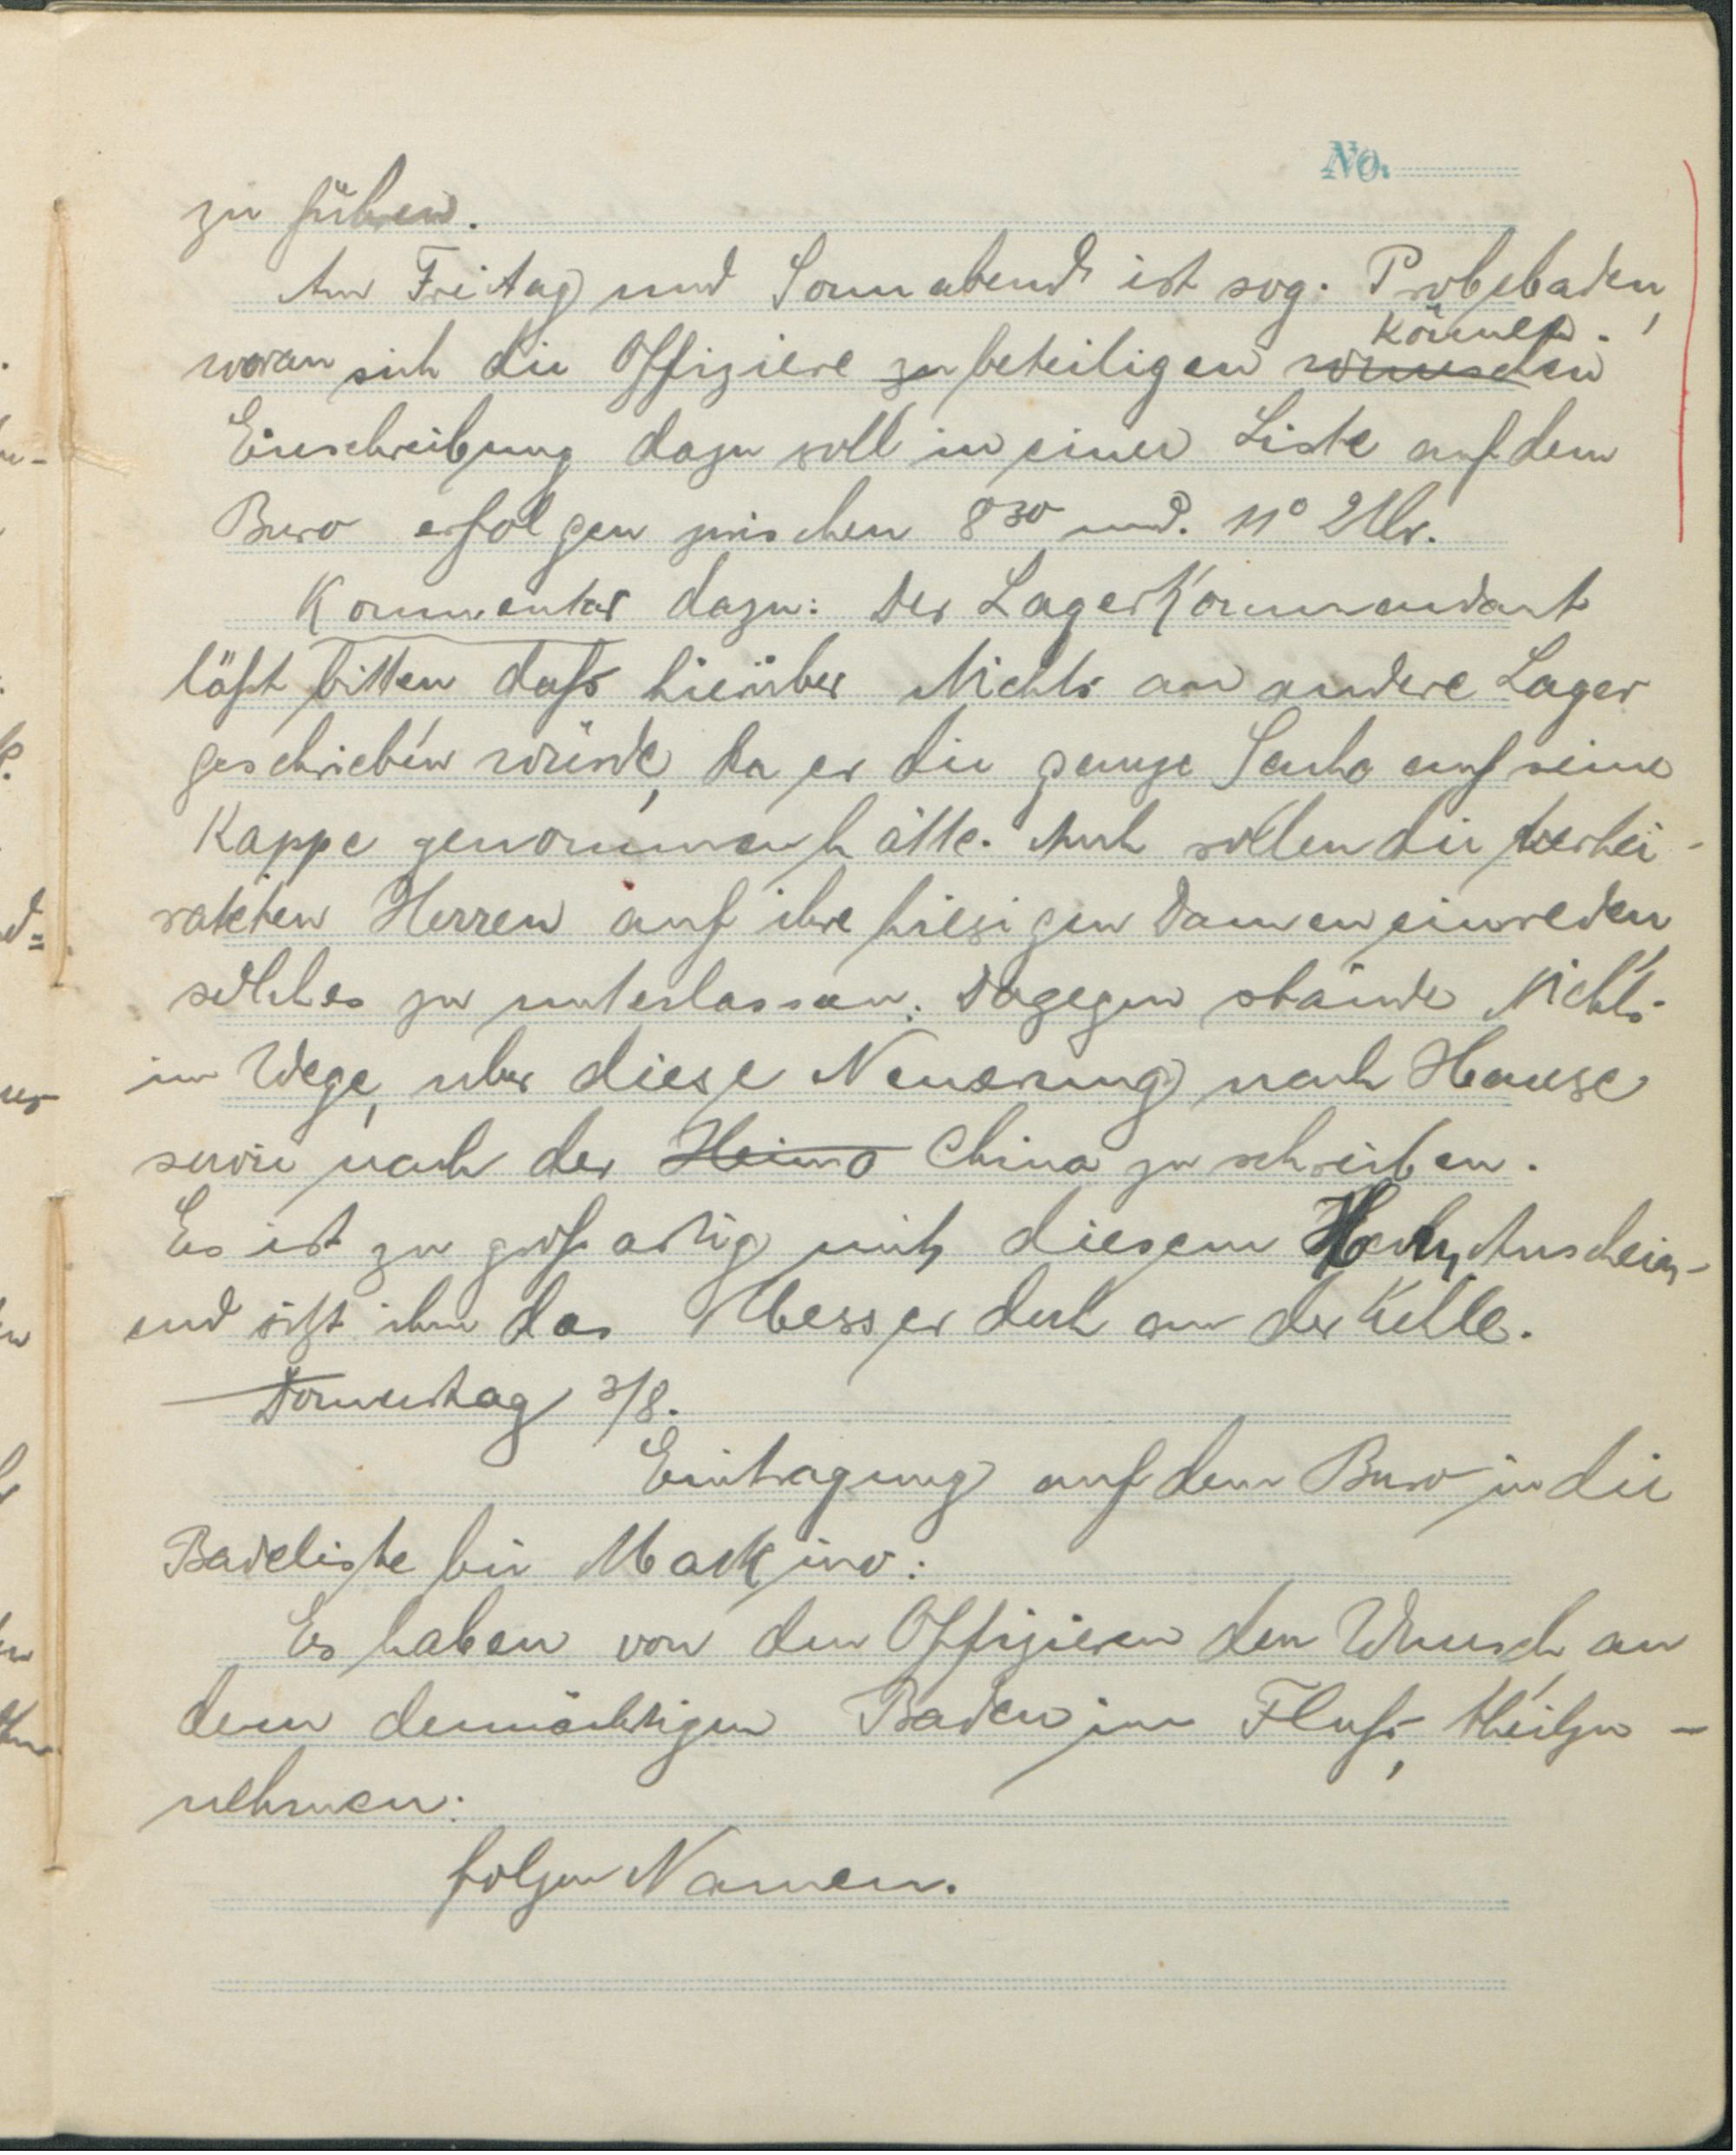 No.
zu führen.
Am Freitag und Sonnabend ist sog. Probebaden,
können.
woran sich die Offiziere zu beteiligen wünschen
Einschreibung dazu soll in einer Liste auf dem
Buro erfolgen zwischen 8 30 und. 11 0 Uhr.
Kommentar dazu: Der Lagerkommandant
läßt bitten daß hierüber Nichts an andere Lager
geschrieben würde, da er die ganze Sache auf seine
Kappe genommen hätte. Auch sollen die verhei-
rateten Herren auf ihre hiesigen Damen einreden,
solches zu unterlassen. Dagegen stände Nichts
im Wege, uber diese Neuerung nach Hause
sowie nach der Heima China zu schreiben.
Es ist zu großartig mit diesem Anschein-
end sitzt ihm das Messer doch an der Kehle.
Donnerstag 2/8.
Eintragung auf dem Buro in die
Badeliste bei Makino:
Es haben von den Offizieren den Wunsch an
dem demnächstigen Baden im Fluß, theilzu-
nehmen:
folgen Namen.